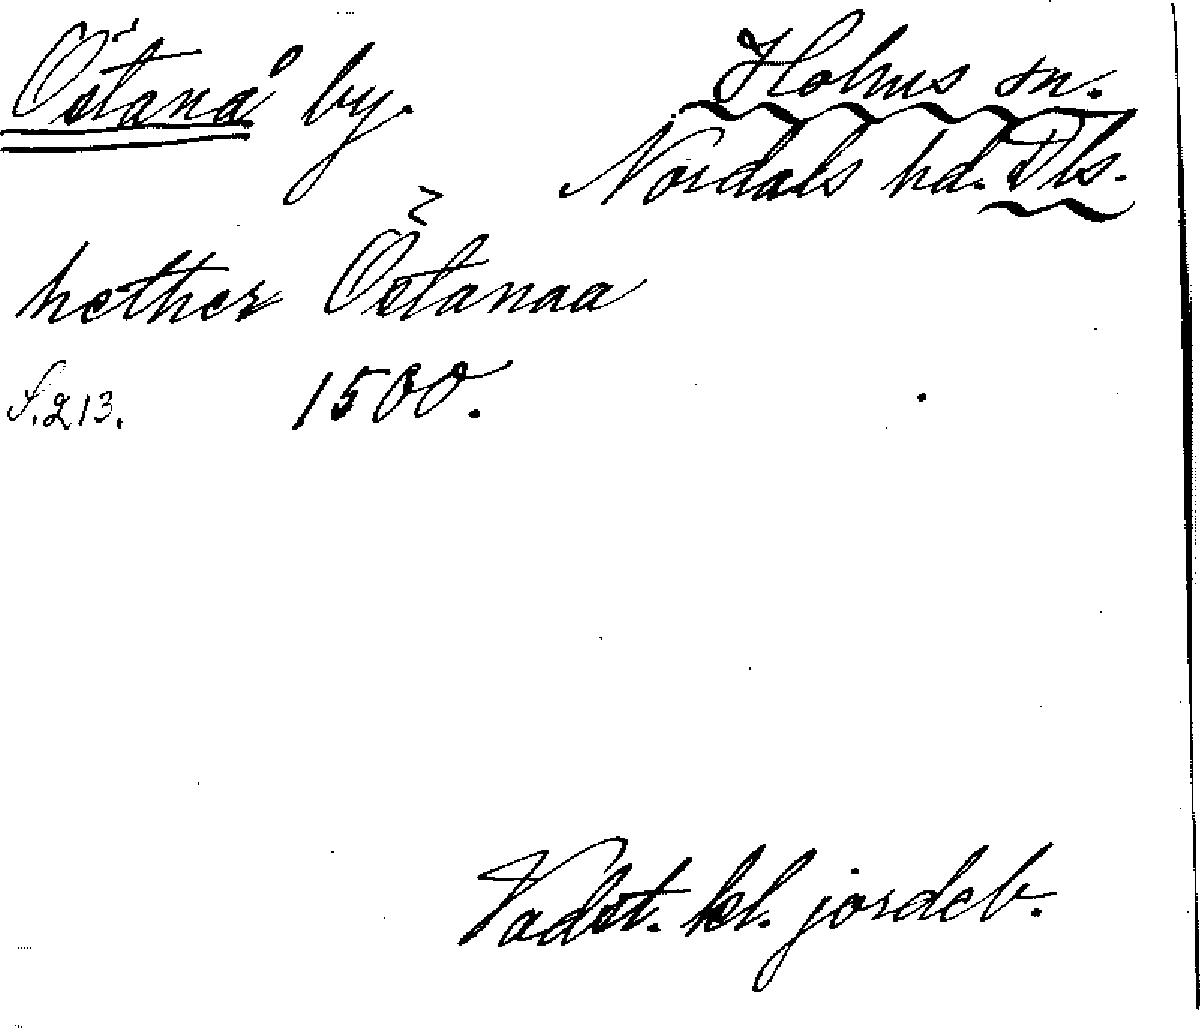 Östanå by. Holms sn.
Nordals hd. Dls.
hether Östanaa
S. 213. 1500.
Vadst. kl. jordeb.